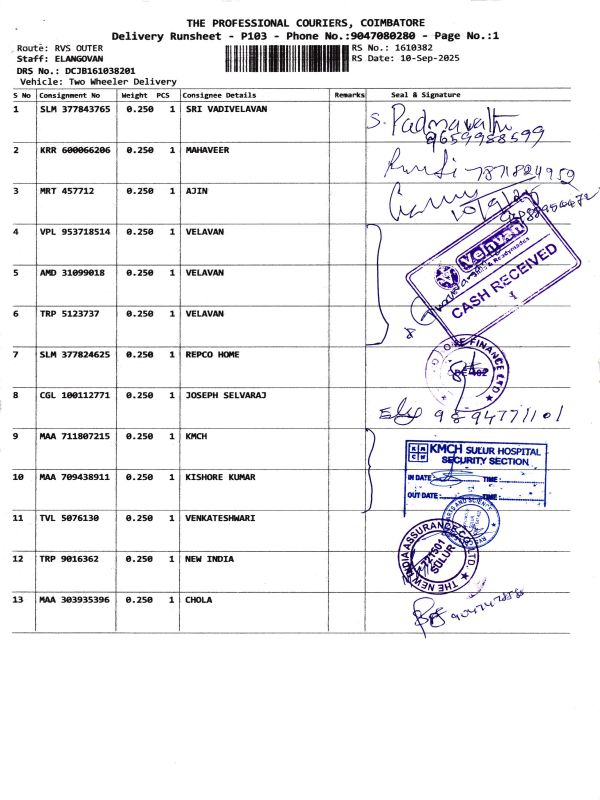 THE PROFESSIONAL COURIERS, COIMBATORE
Delivery Runsheet - P103 - Phone No.:9047080280 - Page No.:1
Route: RVS OUTER
RS No.: 1610382
Staff: ELANGOVAN
RS Date: 10-Sep-2025
DRS No.: DCJB161038201
Vehicle: Two Wheeler Delivery
S No Consignment No Weight PCS Consignee Details Remarks Seal & Signature
1 SLM 377843765 0.250 1 SRI VADIVELAVAN
S. Padmavathi
9659988599
2 KRR 600066206 0.250 1 MAHAVEER
7871824959
3 MRT 457712 0.250 1 AJIN
4 VPL 953718514 0.250 1 VELAVAN
Velavan
CASH RECEIVED
5 AMD 31099018 0.250 1 VELAVAN
6 TRP 5123737 0.250 1 VELAVAN
7 SLM 377824625 0.250 1 REPCO HOME
FINANCE LTD
8 CGL 100112771 0.250 1 JOSEPH SELVARAJ
9894771101
9 MAA 711807215 0.250 1 KMCH
KMCH SULUR HOSPITAL
SECURITY SECTION
IN DATE TIME :
OUT DATE : TIME :
10 MAA 709438911 0.250 1 KISHORE KUMAR
11 TVL 5076130 0.250 1 VENKATESHWARI
ARTS AND SCIENCE
12 TRP 9016362 0.250 1 NEW INDIA
THE NEW INDIA ASSURANCE CO. LTD.
721501
SULUR
13 MAA 303935396 0.250 1 CHOLA